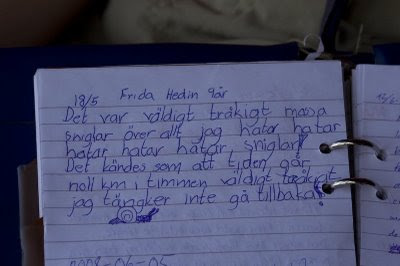 18/5 Frida Hedin 9år
Det var väldigt tråkigt massa
sniglar över allt jag hatar hatar
hatar hatar hatar, sniglar!
Det kändes som att tiden går
noll km i timmen väldigt tråkigt
jag tängker inte gå tillbaka!
2008-06-05